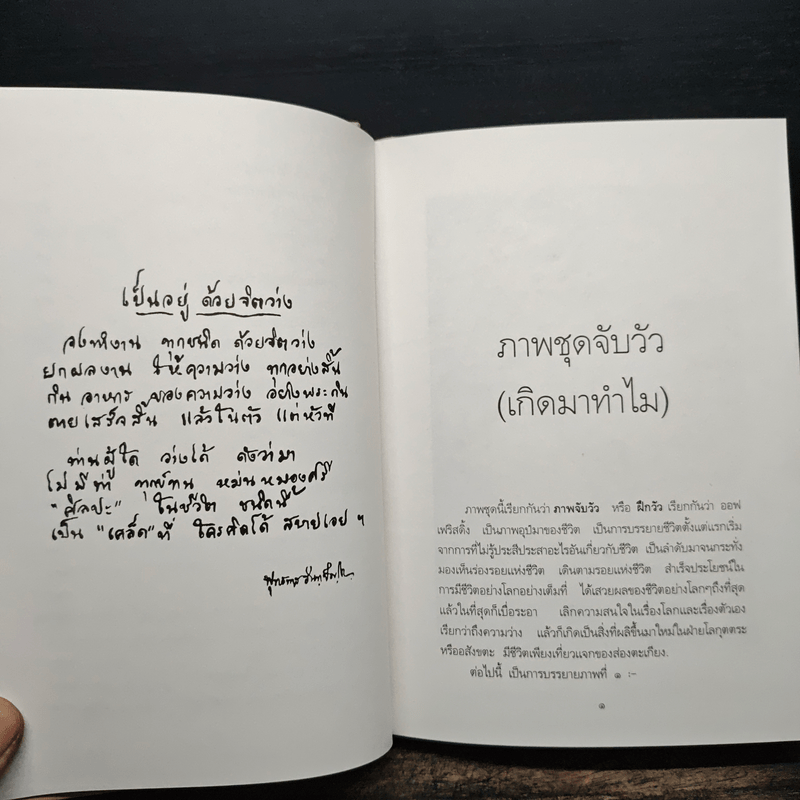 เป็นอยู่ ด้วยจิตว่าง
จงทำงาน ทุกชนิด ด้วยจิตว่าง
ยกผลงาน ให้ความว่าง ทุกอย่างสิ้น
กิน อาหาร ของความว่าง อย่างพระกิน
ตายเสร็จสิ้น แล้วในตัว แต่หัวที
ท่านผู้ใด ว่างได้ ดังว่ามา
ไม่มีท่า ทุกข์ทน หม่นหมองศรี
"ศิลปะ" ในชีวิต ชนิดนี้
เป็น "เคล็ด" ที่ ใครคิดได้ สบายเอย ฯ
พุทธทาส อินฺทปญฺโญ
ภาพชุดจับวัว
(เกิดมาทำไม)
ภาพชุดนี้เรียกกันว่า ภาพจับวัว หรือ ฝึกวัว เรียกกันว่า ออฟ
เฟริสดิ้ง เป็นภาพอุปมาของชีวิต เป็นการบรรยายชีวิตตั้งแต่แรกเริ่ม
จากการที่ไม่รู้ประสีประสาอะไรอันเกี่ยวกับชีวิต เป็นลำดับมาจนกระทั่ง
มองเห็นร่องรอยแห่งชีวิต เดินตามรอยแห่งชีวิต สำเร็จประโยชน์ใน
การมีชีวิตอย่างโลกอย่างเต็มที่ ได้เสวยผลของชีวิตอย่างโลกๆถึงที่สุด
แล้วในที่สุดก็เบื่อระอา เลิกความสนใจในเรื่องโลกและเรื่องตัวเอง
เรียกว่าถึงความว่าง แล้วก็เกิดเป็นสิ่งที่ผลิขึ้นมาใหม่ในฝ่ายโลกุตตระ
หรืออสังขตะ มีชีวิตเพียงเที่ยวแจกของส่องตะเกียง.
ต่อไปนี้ เป็นการบรรยายภาพที่ ๑ :-
๑